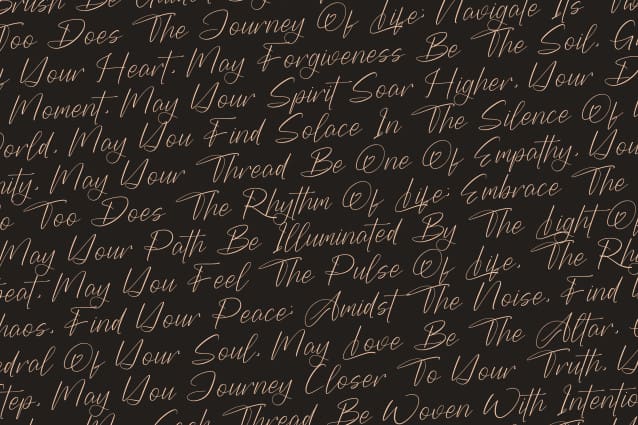 Too Does The Journey Of Life; Navigate Its
Your Heart. May Forgiveness Be The Soil.
Moment. May Your Spirit Soar Higher. Your
World, May You Find Solace In The Silence Of
May Your Thread Be One Of Empathy. You
Too Does The Rhythm Of Life; Embrace The
May Your Path Be Illuminated By The Light O
beat, May You Feel The Pulse Of Life. The Rh
Find Your Peace; Amidst The Noise, Find
Of Your Soul. May Love Be The Altar.
Step. May You Journey Closer To Your Truth.
Thread Be Woven With Intentio